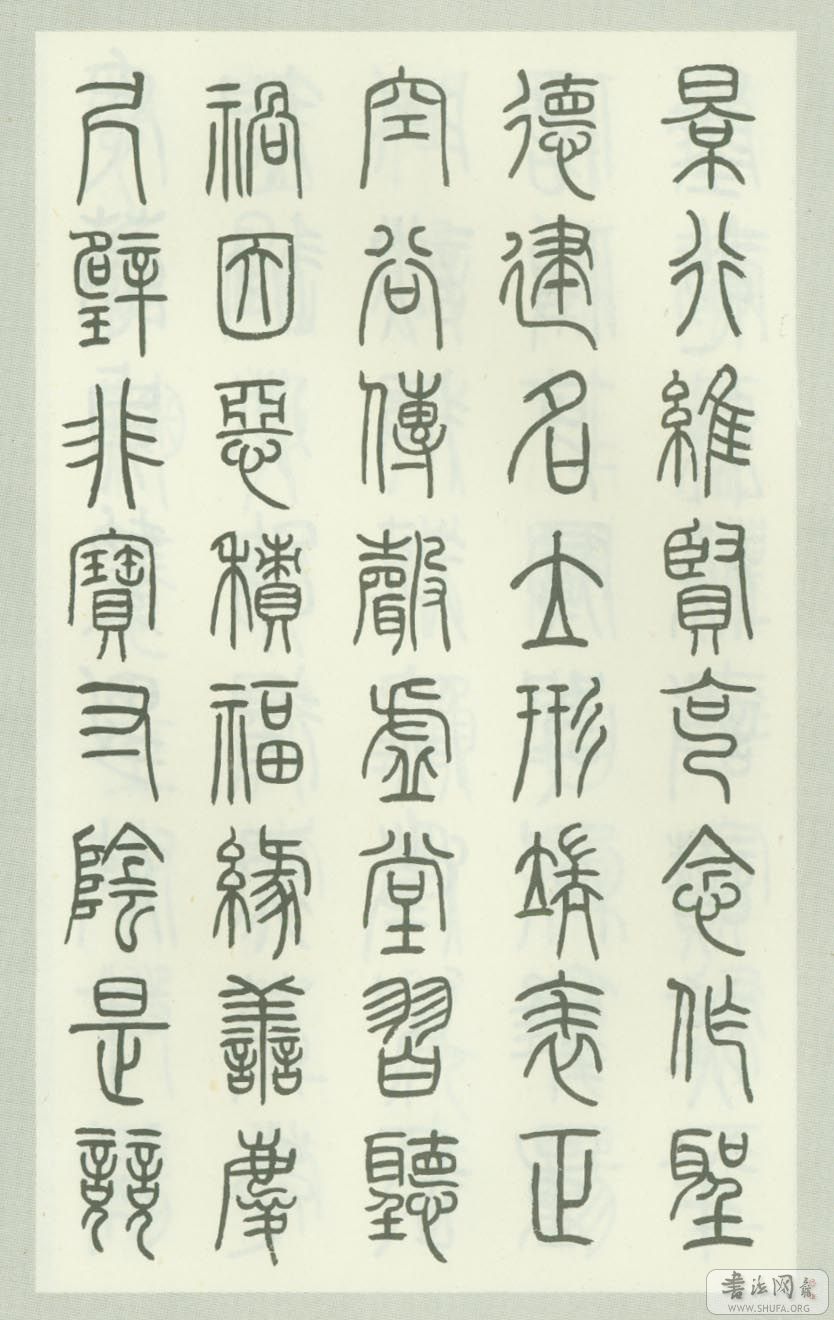 景行維賢克念作聖
德建名立形端表正
空谷傳聲虛堂習聽
禍因惡積福緣善慶
尺璧非寶寸陰是競
書法网
WWW.SHUFA.ORG